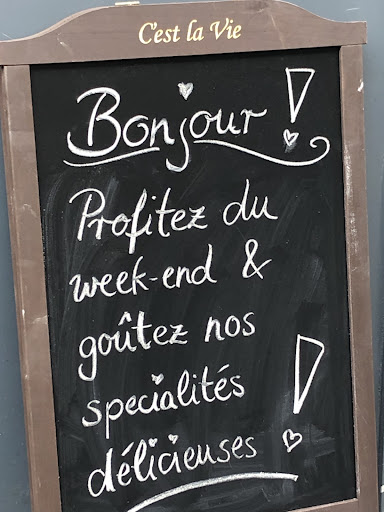 C'est la Vie
Bonjour !
Profitez du
week-end &
goûtez nos
specialités !
délicieuses